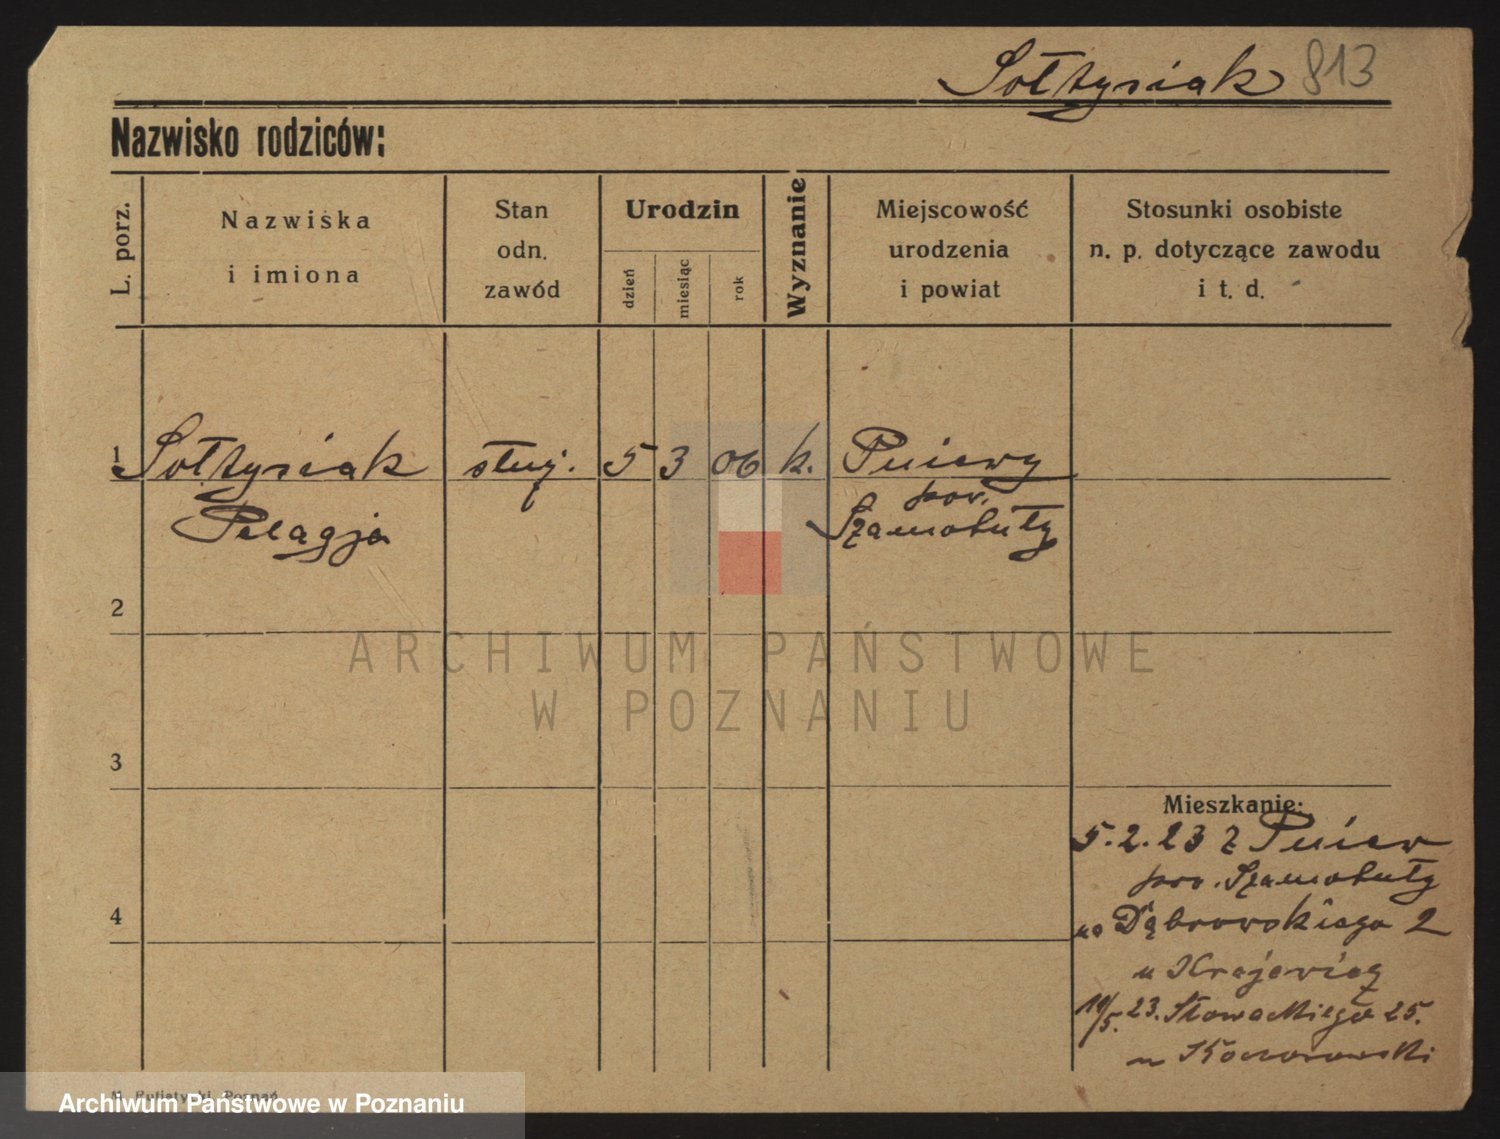 Sołtysiak 813
Nazwisko rodziców:
L. porz.
Nazwiska
i imiona
Stan
odn.
zawód
Urodzin
dzień
miesiąc
rok
Wyznanie
Miejscowość
urodzenia
i powiat
Stosunki osobiste
n. p. dotyczące zawodu
i t. d.
1 Sołtysiak służ. 5 3 06 k. Pniewy
pow.
Pelagja Szamotuły
2
ARCHIWUM PAŃSTWOWE
W POZNANIU
3
Mieszkanie:
5.2.23 z Pniew
pow. Szamotuły
4
na Dąbrowskiego 2
u
23. Słowackiego 25.
Archiwum Państwowe w Poznaniu